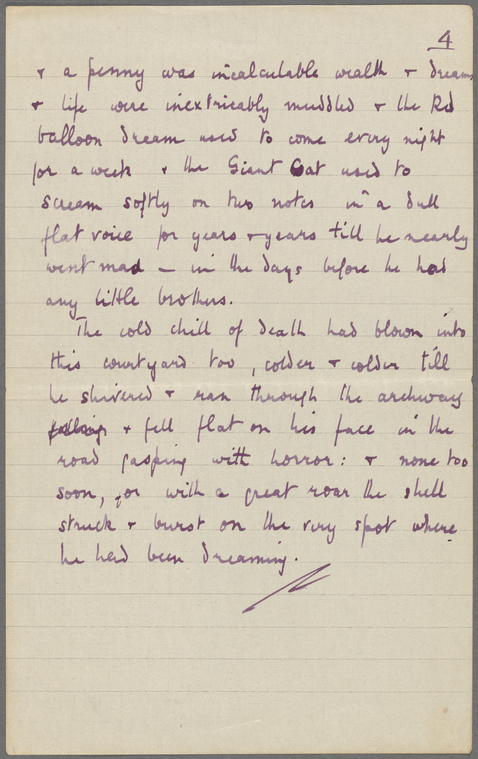 4
+ a penny was incalculable wealth + dreams
+ life were inextricably muddled + the Red
balloon dream used to come every night
for a week + the Giant Cat used to
scream softly on two notes in a dull
flat voice for years + years till he nearly
went mad – in the days before he had
any little brothers.
The cold chill of death had blown into
this courtyard too, colder + colder till
he shivered + ran through the archway
falling + fell flat on his face in the
road gasping with horror: + none too
soon, for with a great roar the shell
struck + burst on the very spot where
he had been dreaming.